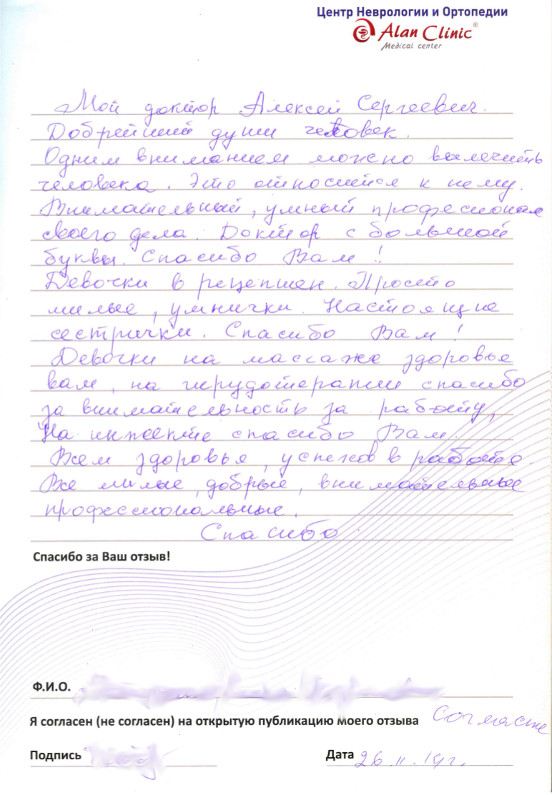 Центр Неврологии и Ортопедии
Alan Clinic®
Medical center
Мой доктор Алексей Сергеевич.
Добрейший души человек.
Одним вниманием можно вылечить
человека. Это относится к нему.
Внимательный, умный професионал
своего дела. Доктор с большой
буквы. Спасибо Вам!
Девочки в рецепшен. Просто
милые, умнички. Настоящие
сестрички. Спасибо Вам!
Девочки на массаже здоровья
вам, на герудотерапии спасибо
за внимательность за работу,
На спасибо Вам.
Всем здоровья, успехов в работе.
Все милые, добрые, внимательные
профессиональные.
Спасибо.
Спасибо за Ваш отзыв!
Ф.И.О.
Я согласен (не согласен) на открытую публикацию моего отзыва Согласие
Подпись Дата 26.11.19г.